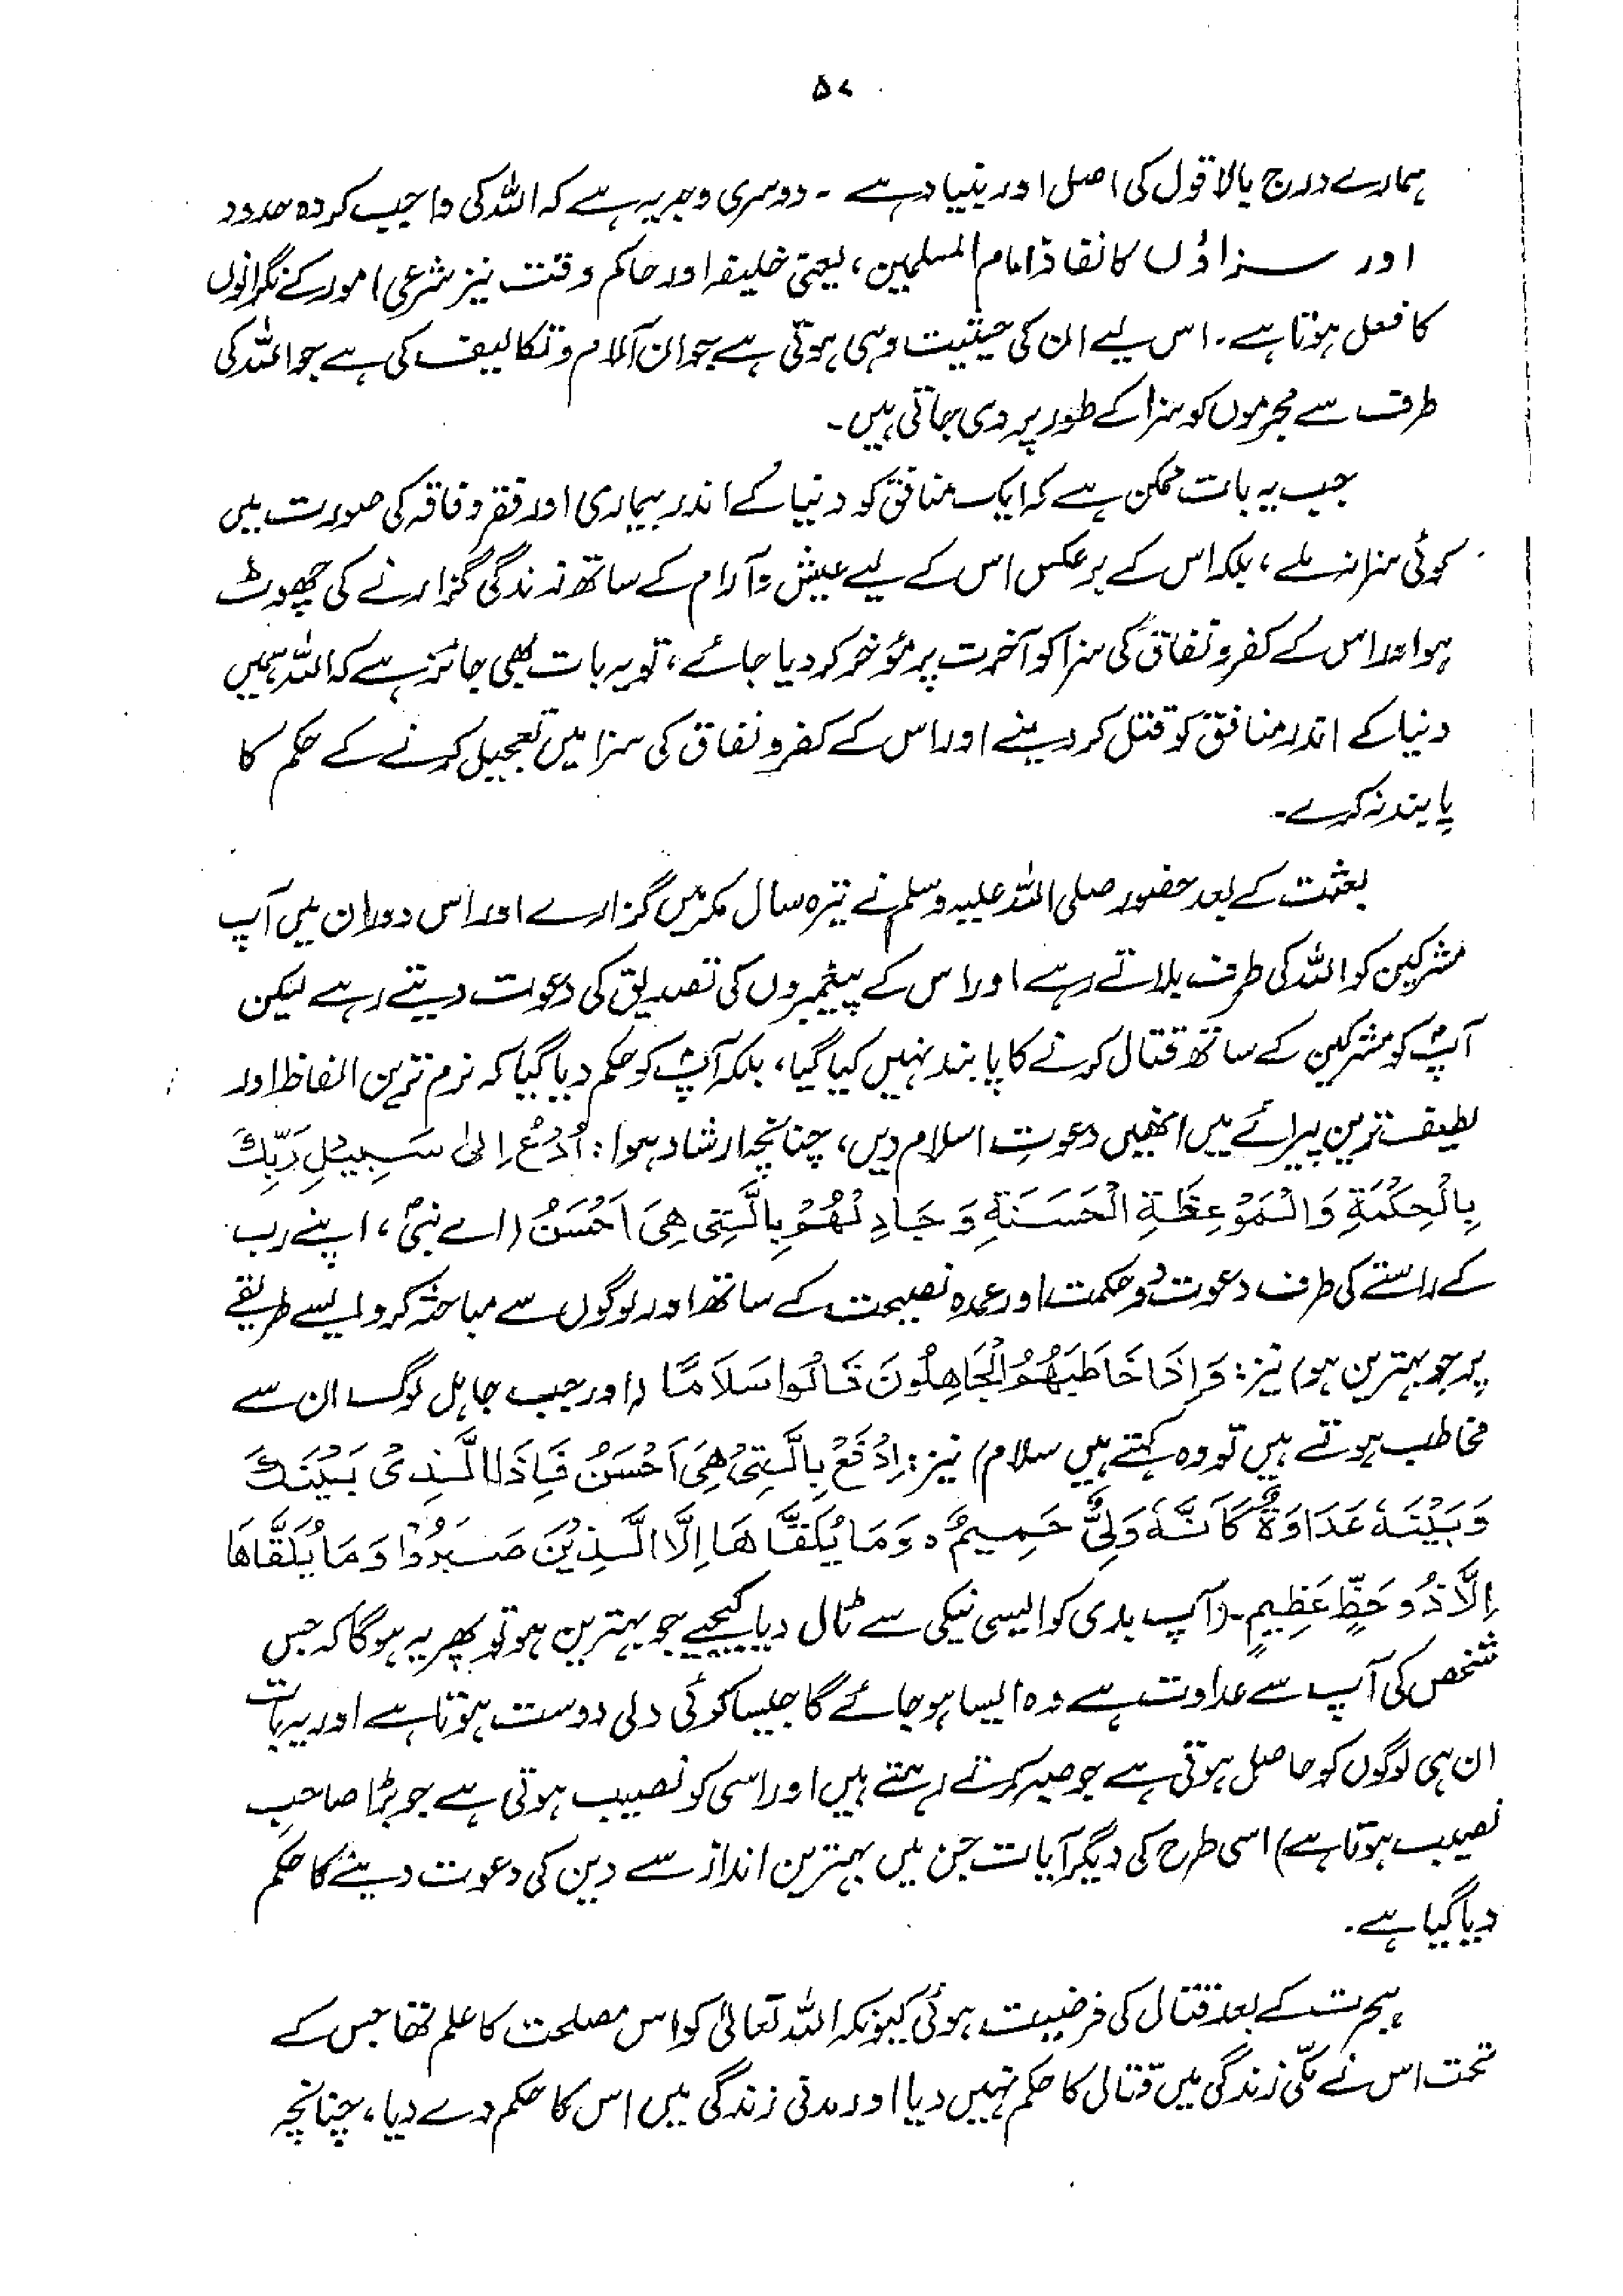 ۵۷
ہمارے درج بالا قول کی اصل اور بنیاد ہے ۔ دوسری وجہ یہ ہے کہ اللہ کی واجب کردہ حدود
اور سزاؤں کا نفاذ امام المسلمین، یعنی خلیفہ اور حاکم وقت نیز شرعی امور کے نگرانوں
کا فعل ہوتا ہے۔ اس لیے ان کی حیثیت وہی ہوتی ہے جو ان آلام و تکالیف کی ہے جو اللہ کی
طرف سے مجرموں کو سزا کے طور پر دی جاتی ہیں۔
جب یہ بات ممکن ہے کہ ایک منافق کو دنیا کے اندر بیماری اور فقر و فاقہ کی صورت میں
کوئی سزا نہ ملے، بلکہ اس کے برعکس اس کے لیے عیش و آرام کے ساتھ زندگی گزارنے کی چھوٹ
ہو اور اس کے کفر و نفاق کی سزا کو آخرت پر مؤخر کر دیا جائے، تو یہ بات بھی جائز ہے کہ اللہ ہمیں
دنیا کے اندر منافق کو قتل کر دینے اور اس کے کفر و نفاق کی سزا میں تعجیل کرنے کے حکم کا
پابند نہ کرے۔
بعثت کے بعد حضور صلی اللہ علیہ وسلم نے تیرہ سال مکہ میں گزارے اور اس دوران میں آپ
مشرکین کو اللہ کی طرف بلاتے رہے اور اس کے پیغمبروں کی تصدیق کی دعوت دیتے رہے لیکن
آپؐ کو مشرکین کے ساتھ قتال کرنے کا پابند نہیں کیا گیا، بلکہ آپؐ کو حکم دیا گیا کہ نرم ترین الفاظ اور
لطیف ترین پیرائے میں انھیں دعوتِ اسلام دیں، چنانچہ ارشاد ہوا: اُدْعُ اِلٰی سَبِیْلِ رَبِّكَ
بِالْحِكْمَةِ وَالْمَوْعِظَةِ الْحَسَنَةِ وَ جَادِلْهُمْ بِالَّتِی هِیَ اَحْسَنُ (اے نبیؐ، اپنے رب
کے راستے کی طرف دعوت دو حکمت اور عمدہ نصیحت کے ساتھ اور لوگوں سے مباحثہ کرو ایسے طریقے
پر جو بہترین ہو) نیز: وَاِذَا خَاطَبَهُمُ الْجَاهِلُوْنَ قَالُوْا سَلَامًا (اور جب جاہل لوگ ان سے
مخاطب ہوتے ہیں تو وہ کہتے ہیں سلام) نیز: اِدْفَعْ بِالَّتِیْ هِیَ اَحْسَنُ فَاِذَا الَّذِیْ بَیْنَكَ
وَبَیْنَهٗ عَدَاوَةٌ كَاَنَّهٗ وَلِیٌّ حَمِیْمٌ ہ وَمَا یُلَقَّاهَا اِلَّا الَّذِیْنَ صَبَرُوْا وَمَا یُلَقَّاهَا
اِلَّا ذُوْ حَظٍّ عَظِیْمٍ۔ (آپ بدی کو ایسی نیکی سے ٹال دیا کیجیے جو بہترین ہو تو پھر یہ ہوگا کہ جس
شخص کی آپ سے عداوت ہے وہ ایسا ہو جائے گا جیسا کوئی دلی دوست ہوتا ہے اور یہ بات
ان ہی لوگوں کو حاصل ہوتی ہے جو صبر کرتے رہتے ہیں اور اسی کو نصیب ہوتی ہے جو بڑا صاحبِ
نصیب ہوتا ہے) اسی طرح کی دیگر آیات جن میں بہترین انداز سے دین کی دعوت دینے کا حکم
دیا گیا ہے۔
ہجرت کے بعد قتال کی فرضیت ہوئی کیونکہ اللہ تعالیٰ کو اس مصلحت کا علم تھا جس کے
تحت اس نے مکّی زندگی میں قتال کا حکم نہیں دیا اور مدنی زندگی میں اس کا حکم دے دیا، چنانچہ